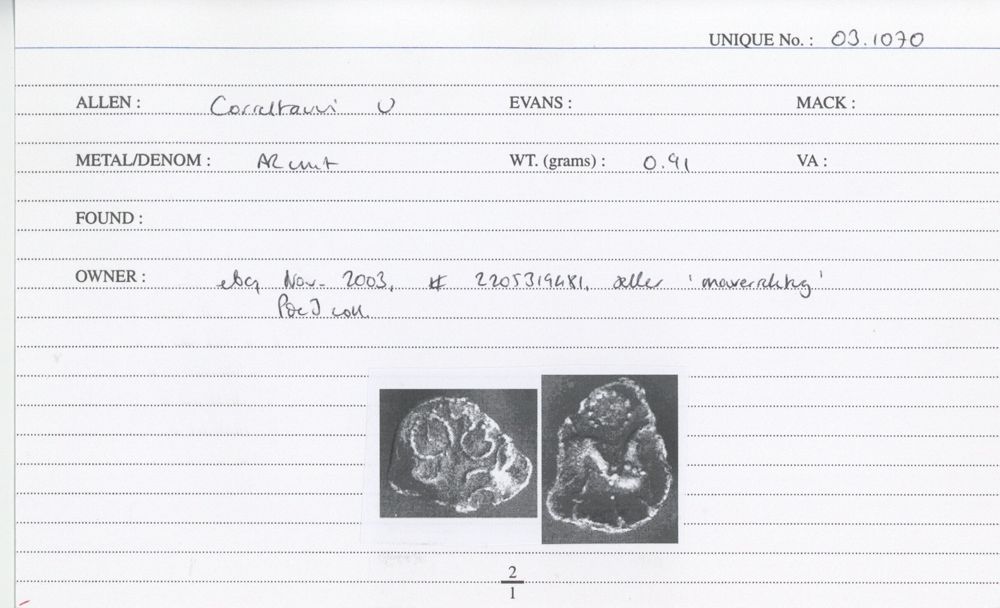 UNIQUE No. : 03.1070
ALLEN : Correltauvi U EVANS : MACK :
METAL/DENOM : AR unit WT. (grams) : 0.91 VA :
FOUND :
OWNER : ebay Nov. 2003, # 2205319481, seller
coll
2
1